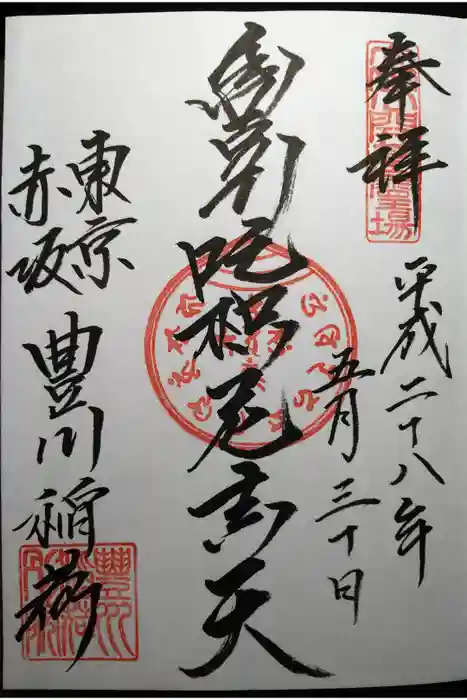 奉拝
平成二十八年
五月三十日
吒枳尼真天
東京
赤坂
豊川稲荷